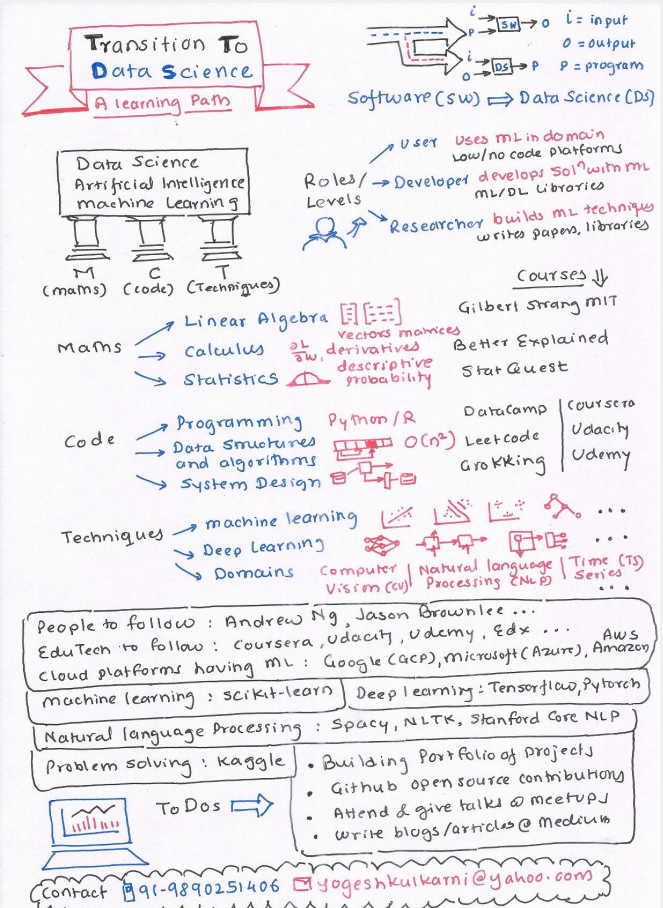 Transition To
Data Science
A learning Path
i → SW → o
P
i → DS → P
o
i = input
o = output
P = program
Software (SW) ⇒ Data Science (DS)
Data Science
Artificial Intelligence
machine Learning
M C T
(maths) (code) (Techniques)
Roles/
Levels
User uses ML in domain
Low/no code platforms
Developer develops Solⁿ with ML
ML/DL Libraries
Researcher builds ML techniques
writes papers, libraries
Maths
Linear Algebra
vectors matrices
Calculus ∂L/∂W, derivatives
Statistics descriptive
probability
Courses
Gilbert Strang MIT
Better Explained
Stat Quest
Code
Programming Python/R
Data Structures
and algorithms O(n²)
System Design
DataCamp | Coursera
Leetcode | Udacity
Grokking | Udemy
Techniques
machine learning ...
Deep Learning ...
Domains Computer | Natural language | Time (TS)
Vision (CV) | Processing (NLP) | Series ...
People to follow : Andrew Ng, Jason Brownlee ...
EduTech to follow : Coursera, Udacity, Udemy, Edx ...
Cloud platforms having ML : Google (GCP), Microsoft (Azure), AWS Amazon
machine learning : scikit-learn
Deep learning : Tensorflow, Pytorch
Natural language Processing : Spacy, NLTK, Stanford Core NLP
Problem solving : Kaggle
To Dos
• Building Portfolio of Projects
• Github open source contributions
• Attend & give talks @ meetups
• Write blogs/articles @ Medium
Contact 91-9890251406 yogeshkulkarni@yahoo.com